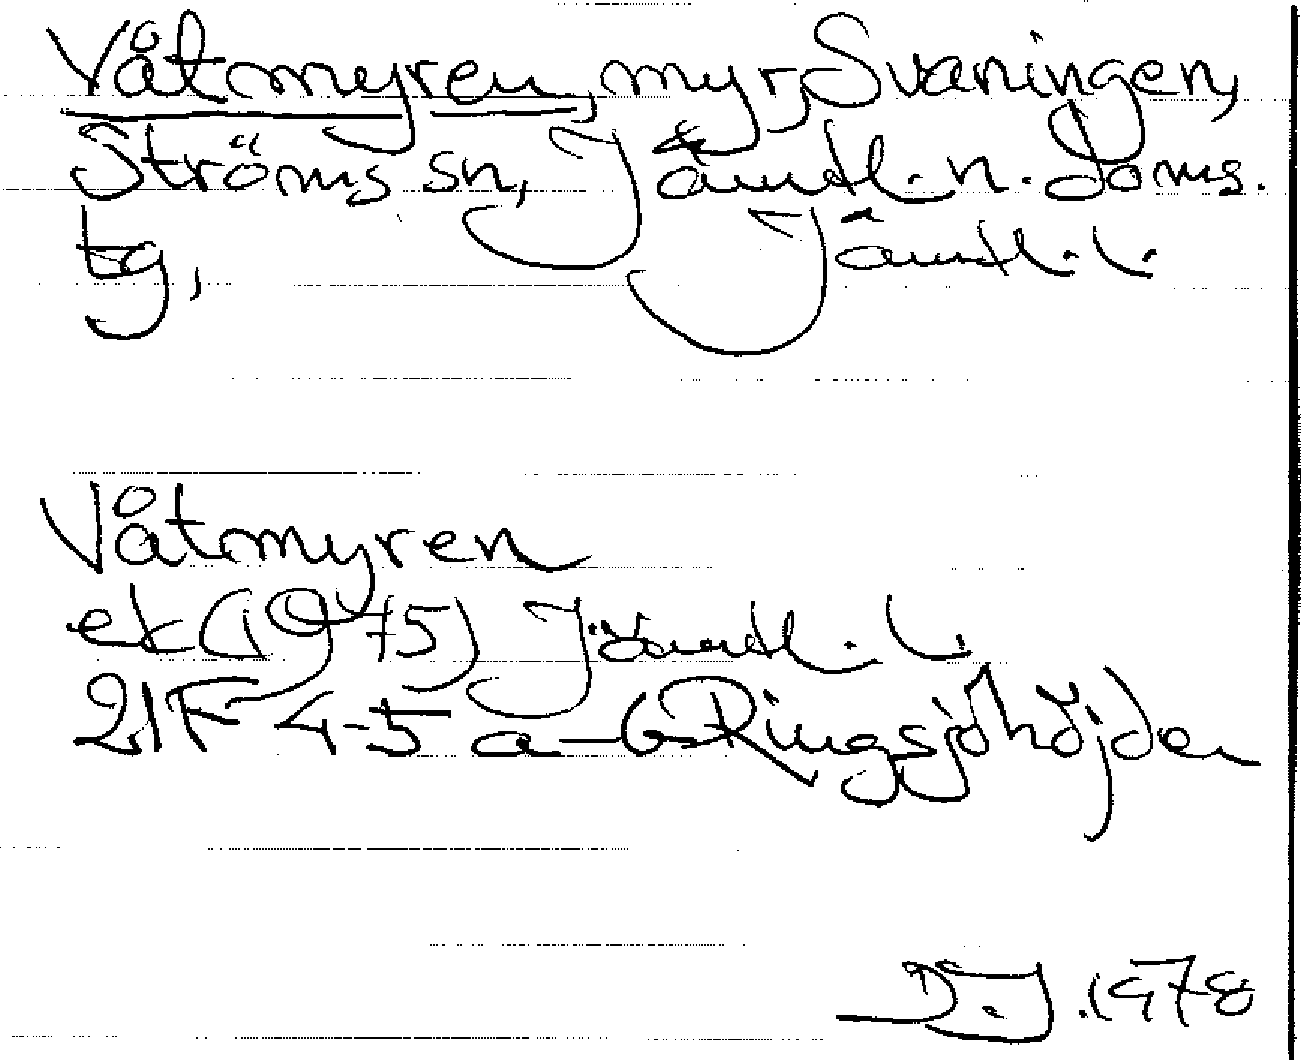 Våtmyren, myr, Svaningen,
Ströms sn, Jämtl. n. doms.
tg, Jämtl. l.
Våtmyren
ek (1975) Jämtl. l.
21F 4-5 a-b Ringsjöhöjden
D.J. 1978